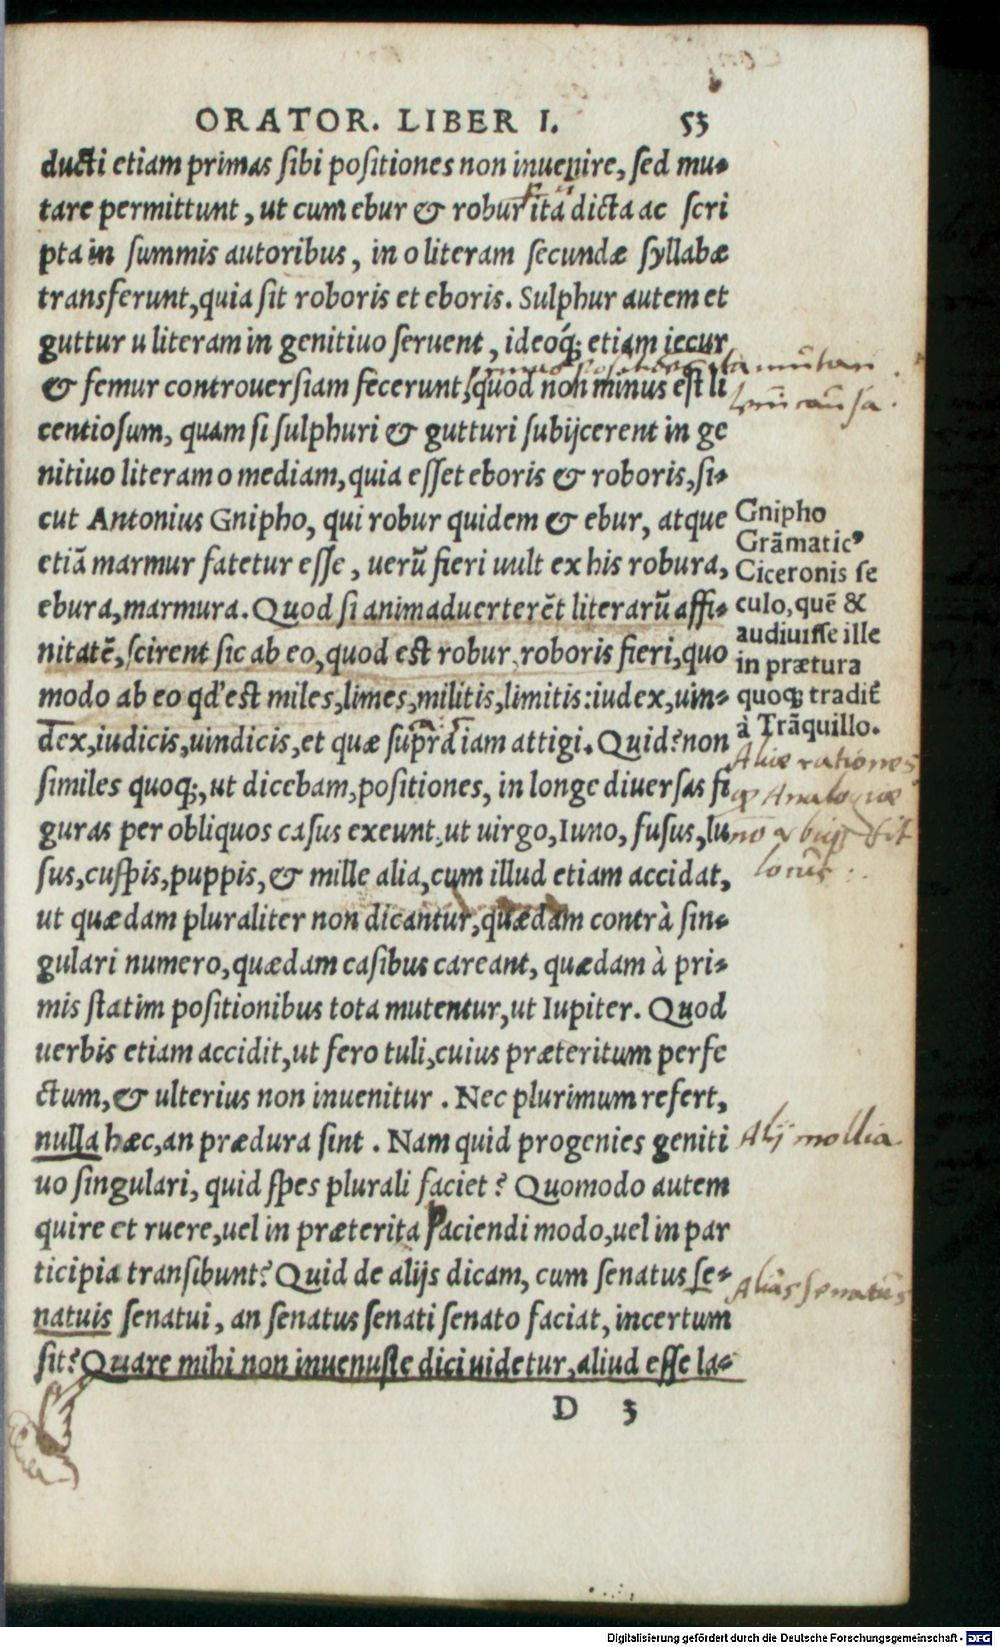 ORATOR. LIBER I. 53
ducti etiam primas sibi positiones non inuenire, sed mu-
tare permittunt, ut cum ebur & robur ita dicta ac scri
pta in summis autoribus, in o literam secundæ syllabæ
transferunt, quia sit roboris et eboris. Sulphur autem et
guttur u literam in genitiuo seruent, ideoq́; etiam iecur
& femur controuersiam fecerunt, quod non minus est li
centiosum, quam si sulphuri & gutturi subijcerent in ge
nitiuo literam o mediam, quia esset eboris & roboris, si-
cut Antonius Gnipho, qui robur quidem & ebur, atque
etiā marmur fatetur esse, uerū fieri uult ex his robura,
ebura, marmura. Quod si animaduerterēt literarū affi-
nitatē, scirent sic ab eo, quod est robur, roboris fieri, quo
modo ab eo qd' est miles, limes, militis, limitis: iudex, uin-
dex, iudicis, uindicis, et quæ supra iam attigi. Quid? non
similes quoq;, ut dicebam, positiones, in longe diuersas fi
guras per obliquos casus exeunt, ut uirgo, Iuno, fusus, lu
sus, cuspis, puppis, & mille alia, cum illud etiam accidat,
ut quædam pluraliter non dicantur, quædam contrà sin-
gulari numero, quædam casibus careant, quædam à pri-
mis statim positionibus tota mutentur, ut Iupiter. Quod
uerbis etiam accidit, ut fero tuli, cuius præteritum perfe
ctum, & ulterius non inuenitur. Nec plurimum refert,
nulla hæc, an prædura sint. Nam quid progenies geniti
uo singulari, quid spes plurali faciet? Quomodo autem
quire et ruere, uel in præterita paciendi modo, uel in par
ticipia transibunt? Quid de alijs dicam, cum senatus se-
natuis senatui, an senatus senati senato faciat, incertum
sit? Quare mihi non inuenuste dici uidetur, aliud esse la-
D 3
Gnipho
Grāmatic⁹
Ciceronis se
culo, quē &
audiuisse ille
in prætura
quoq; tradit̄
à Trāquillo.
Aliæ rationes
Alij mollia.
Aliàs senatus
Digitalisierung gefördert durch die Deutsche Forschungsgemeinschaft - DFG